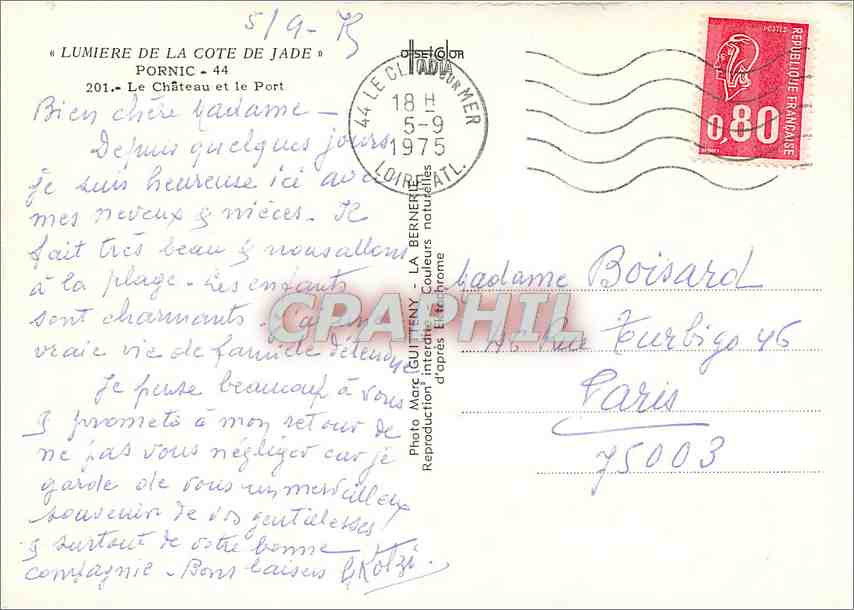 5/9-75
« LUMIERE DE LA COTE DE JADE »
PORNIC - 44
201.- Le Château et le Port
Bien chère Madame -
Depuis quelques jours
je suis heureuse ici avec
mes neveux & nièces. Il
fait très beau & nous allons
à la plage - Les enfants
sont charmants.
vraie vie de famille détendue
Je pense beaucoup à vous
& promets à mon retour de
ne pas vous négliger car je
garde de vous un merveilleux
souvenir de vos gentillesses
& surtout de votre bonne
compagnie - Bons baisers
OFFSET COLOR
44 LE CLION SUR MER
18 H
5-9
1975
LOIRE ATL.
POSTES
REPUBLIQUE FRANÇAISE
0,80
Photo Marc GUITTENY - LA BERNERIE
Reproduction interdite Couleurs naturelles
d'après Ektachrome
Madame Boisard
Rue Turbigo 46
Paris
75003
CPAPHIL